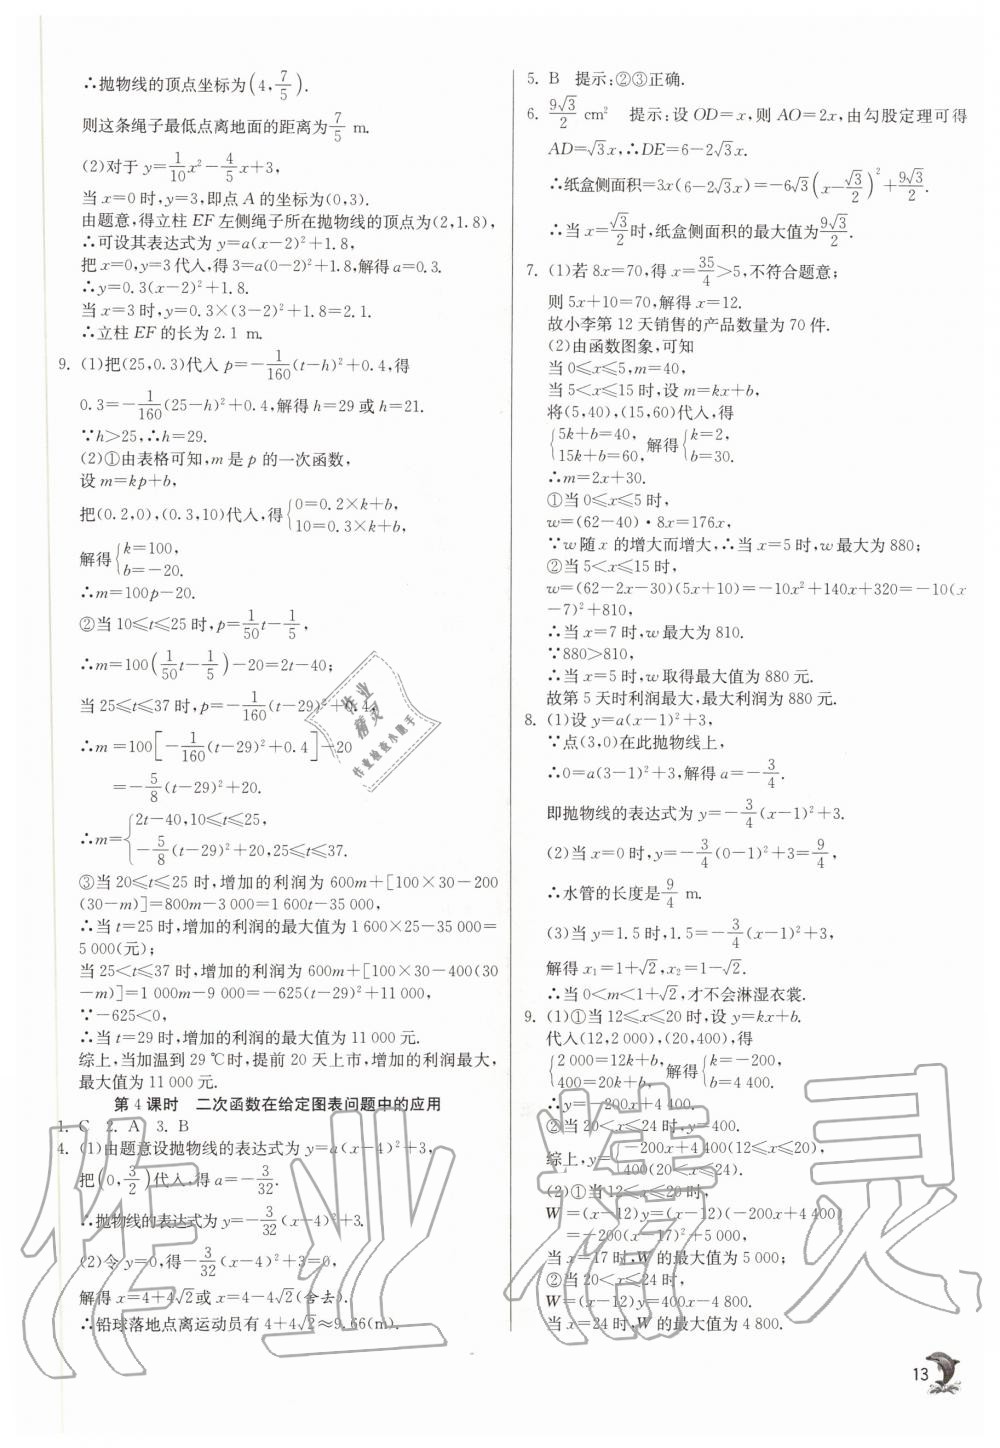 ∴抛物线的顶点坐标为(4,7/5).
则这条绳子最低点离地面的距离为7/5 m.
(2)对于 y=1/10x²-4/5x+3,
当 x=0 时,y=3,即点 A 的坐标为(0,3).
由题意,得立柱 EF 左侧绳子所在抛物线的顶点为(2,1.8),
∴可设其表达式为 y=a(x-2)²+1.8,
把 x=0,y=3 代入,得 3=a(0-2)²+1.8,解得 a=0.3.
∴y=0.3(x-2)²+1.8.
当 x=3 时,y=0.3×(3-2)²+1.8=2.1.
∴立柱 EF 的长为 2.1 m.
9. (1)把(25,0.3)代入 p=-1/160(t-h)²+0.4,得
0.3=-1/160(25-h)²+0.4,解得 h=29 或 h=21.
∵h>25,∴h=29.
(2)①由表格可知,m 是 p 的一次函数,
设 m=kp+b,
把(0.2,0),(0.3,10)代入,得{0=0.2×k+b, 10=0.3×k+b,
解得{k=100, b=-20.
∴m=100p-20.
②当 10≤t≤25 时,p=1/50t-1/5,
∴m=100(1/50t-1/5)-20=2t-40;
当 25≤t≤37 时,p=-1/160(t-29)²+0.4,
∴m=100[-1/160(t-29)²+0.4]-20
=-5/8(t-29)²+20.
∴m={2t-40,10≤t≤25, -5/8(t-29)²+20,25≤t≤37.
③当 20≤t≤25 时,增加的利润为 600m+[100×30-200
(30-m)]=800m-3 000=1 600t-35 000,
∴当 t=25 时,增加的利润的最大值为 1 600×25-35 000=
5 000(元);
当 25<t≤37 时,增加的利润为 600m+[100×30-400(30
-m)]=1 000m-9 000=-625(t-29)²+11 000,
∵-625<0,
∴当 t=29 时,增加的利润的最大值为 11 000 元.
综上,当加温到 29 ℃时,提前 20 天上市,增加的利润最大,
最大值为 11 000 元.
第 4 课时 二次函数在给定图表问题中的应用
1. C 2. A 3. B
4. (1)由题意设抛物线的表达式为 y=a(x-4)²+3,
把(0,3/2)代入,得 a=-3/32.
∴抛物线的表达式为 y=-3/32(x-4)²+3.
(2)令 y=0,得-3/32(x-4)²+3=0,
解得 x=4+4√2或 x=4-4√2(舍去).
∴铅球落地点离运动员有 4+4√2≈9.66(m).
5. B 提示:②③正确.
6. 9√3/2 cm² 提示:设 OD=x,则 AO=2x,由勾股定理可得
AD=√3x,∴DE=6-2√3x.
∴纸盒侧面积=3x(6-2√3x)=-6√3(x-√3/2)²+9√3/2.
∴当 x=√3/2时,纸盒侧面积的最大值为9√3/2.
7. (1)若 8x=70,得 x=35/4>5,不符合题意;
则 5x+10=70,解得 x=12.
故小李第 12 天销售的产品数量为 70 件.
(2)由函数图象,可知
当 0≤x≤5,m=40,
当 5<x≤15 时,设 m=kx+b,
将(5,40),(15,60)代入,得
{5k+b=40, 15k+b=60, 解得{k=2, b=30.
∴m=2x+30.
①当 0≤x≤5 时,
w=(62-40)·8x=176x,
∵w 随 x 的增大而增大,∴当 x=5 时,w 最大为 880;
②当 5<x≤15 时,
w=(62-2x-30)(5x+10)=-10x²+140x+320=-10(x
-7)²+810,
∴当 x=7 时,w 最大为 810.
∵880>810,
∴当 x=5 时,w 取得最大值为 880 元.
故第 5 天时利润最大,最大利润为 880 元.
8. (1)设 y=a(x-1)²+3,
∵点(3,0)在此抛物线上,
∴0=a(3-1)²+3,解得 a=-3/4.
即抛物线的表达式为 y=-3/4(x-1)²+3.
(2)当 x=0 时,y=-3/4(0-1)²+3=9/4,
∴水管的长度是9/4 m.
(3)当 y=1.5 时,1.5=-3/4(x-1)²+3,
解得 x₁=1+√2,x₂=1-√2.
∴当 0<m<1+√2,才不会淋湿衣裳.
9. (1)①当 12≤x≤20 时,设 y=kx+b.
代入(12,2 000),(20,400),得
{2 000=12k+b, 400=20k+b, 解得{k=-200, b=4 400.
∴y=-200x+4 400.
②当 20<x≤24 时,y=400.
综上,y={-200x+4 400(12≤x≤20), 400(20<x≤24).
(2)①当 12≤x≤20 时,
W=(x-12)y=(x-12)(-200x+4 400)
=-200(x-17)²+5 000;
当 x=17 时,W 的最大值为 5 000;
②当 20<x≤24 时,
W=(x-12)y=400x-4 800.
当 x=24 时,W 的最大值为 4 800.
作业精灵
作业检查小助手
作业精灵
13